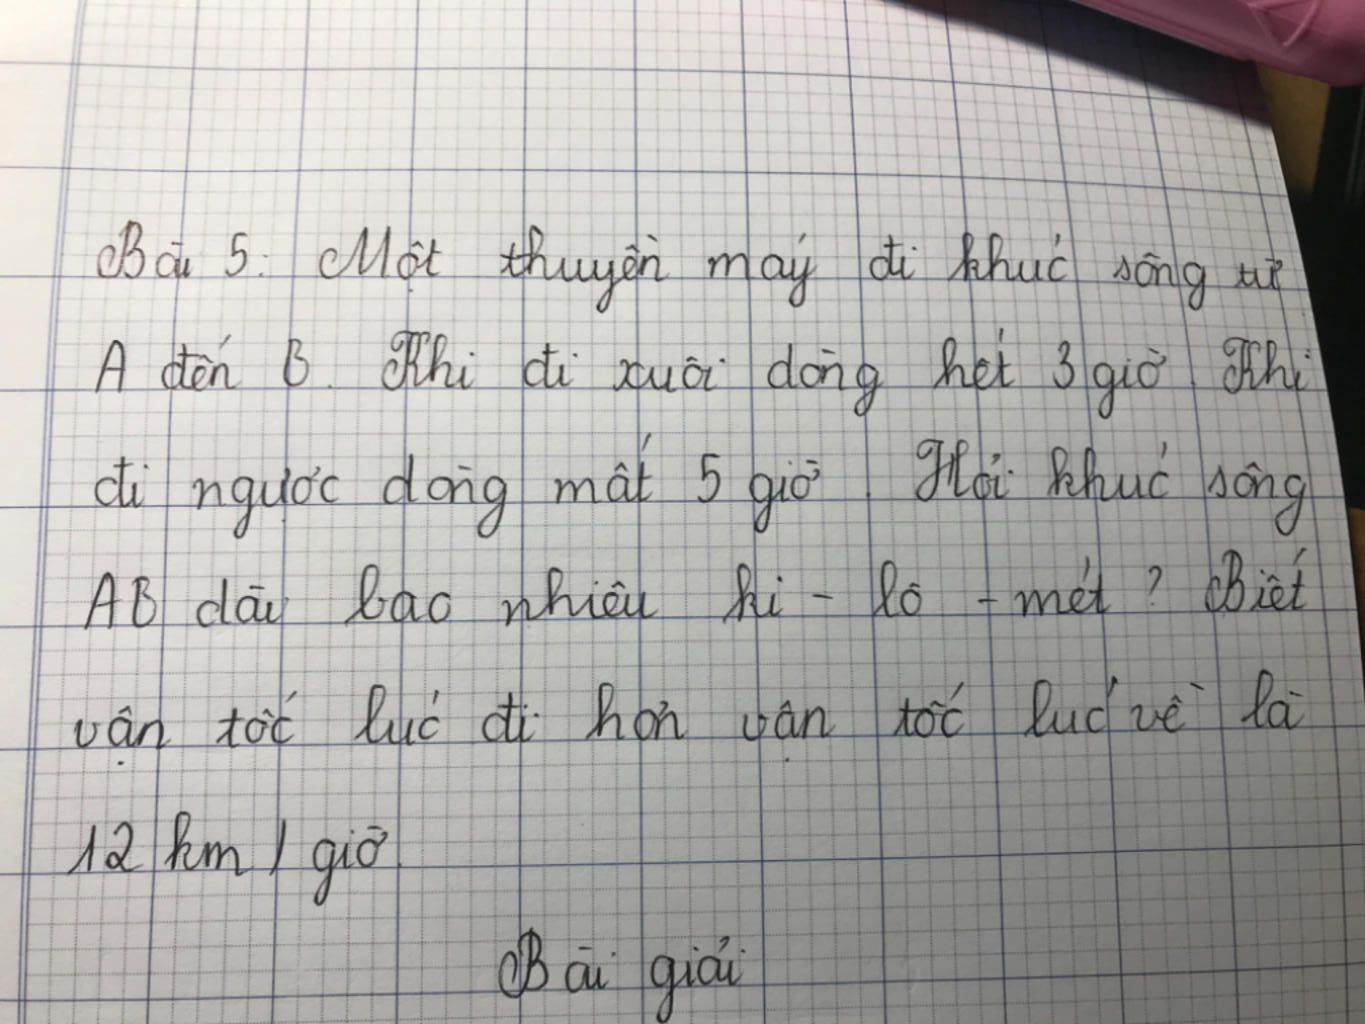 Bài 5: Một thuyền máy đi khúc sông từ
A đến B. Khi đi xuôi dòng hết 3 giờ. Khi
đi ngược dòng mất 5 giờ. Hỏi khúc sông
AB dài bao nhiêu ki - lô - mét? Biết
vận tốc lúc đi hơn vận tốc lúc về là
12 km / giờ.
Bài giải